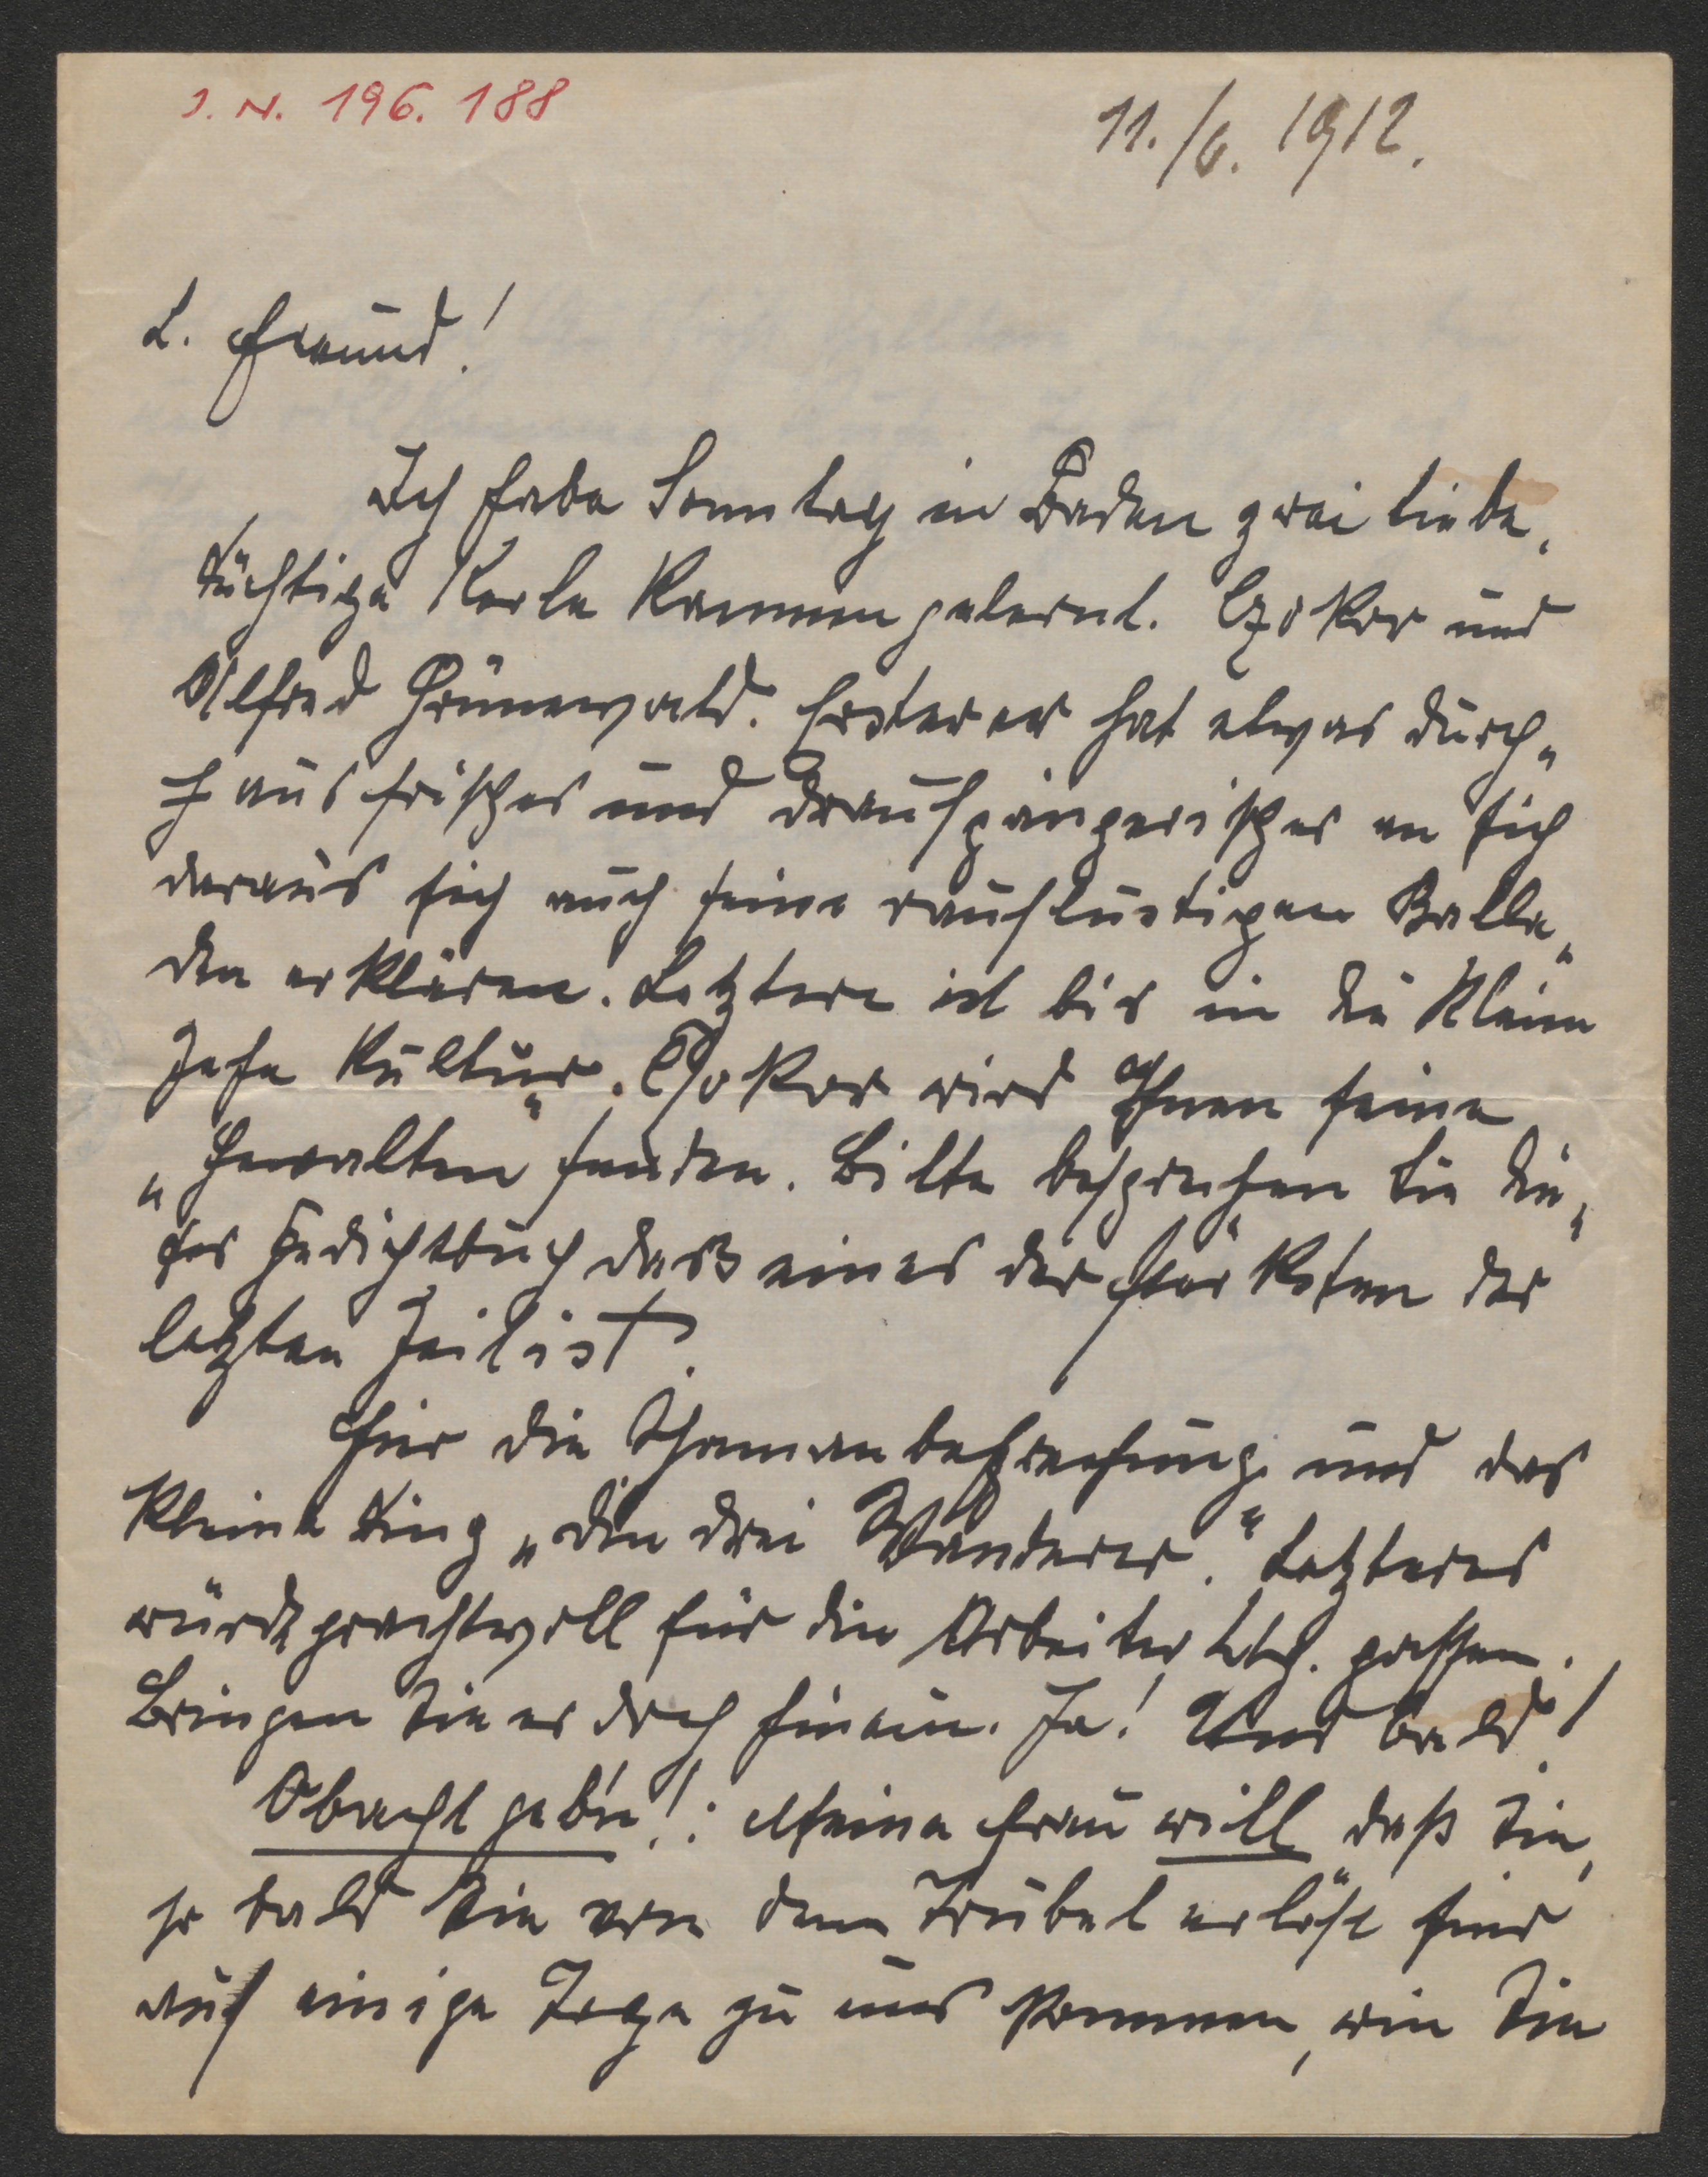 I. N. 196.188
11./6. 1912.
L. Freund!
Ich habe Sonntag in Baden zwei liebe,
tüchtige Kerle kennen gelernt. Czokor und
Alfred Grünewald. Ersterer hat etwas durch„
aus frisches und draufgängerisches an sich
daraus sich auch seine rauflustigen Balla„
den erklären. Letztere ist bis in die kleine
Zehe Kultur. Czokor wird Ihnen seine
„Gewalten“ senden. Bitte besprechen Sie die„
ses Gedichtbuch daß eines der stärksten der
letzten Zeit ist.
Hier die Thomanbesprechung und das
kleine Ding „die drei Wanderer.“ Letzteres
würde prachtvoll für die Arbeiter Ztg. passen.
Bringen Sie es doch hinein. Ja! Und bald!
Obacht geb'n!: Meine Frau will daß Sie,
so bald Sie von dem Trubel erlöst sind
auf einige Tage zu uns kommen, wie Sie